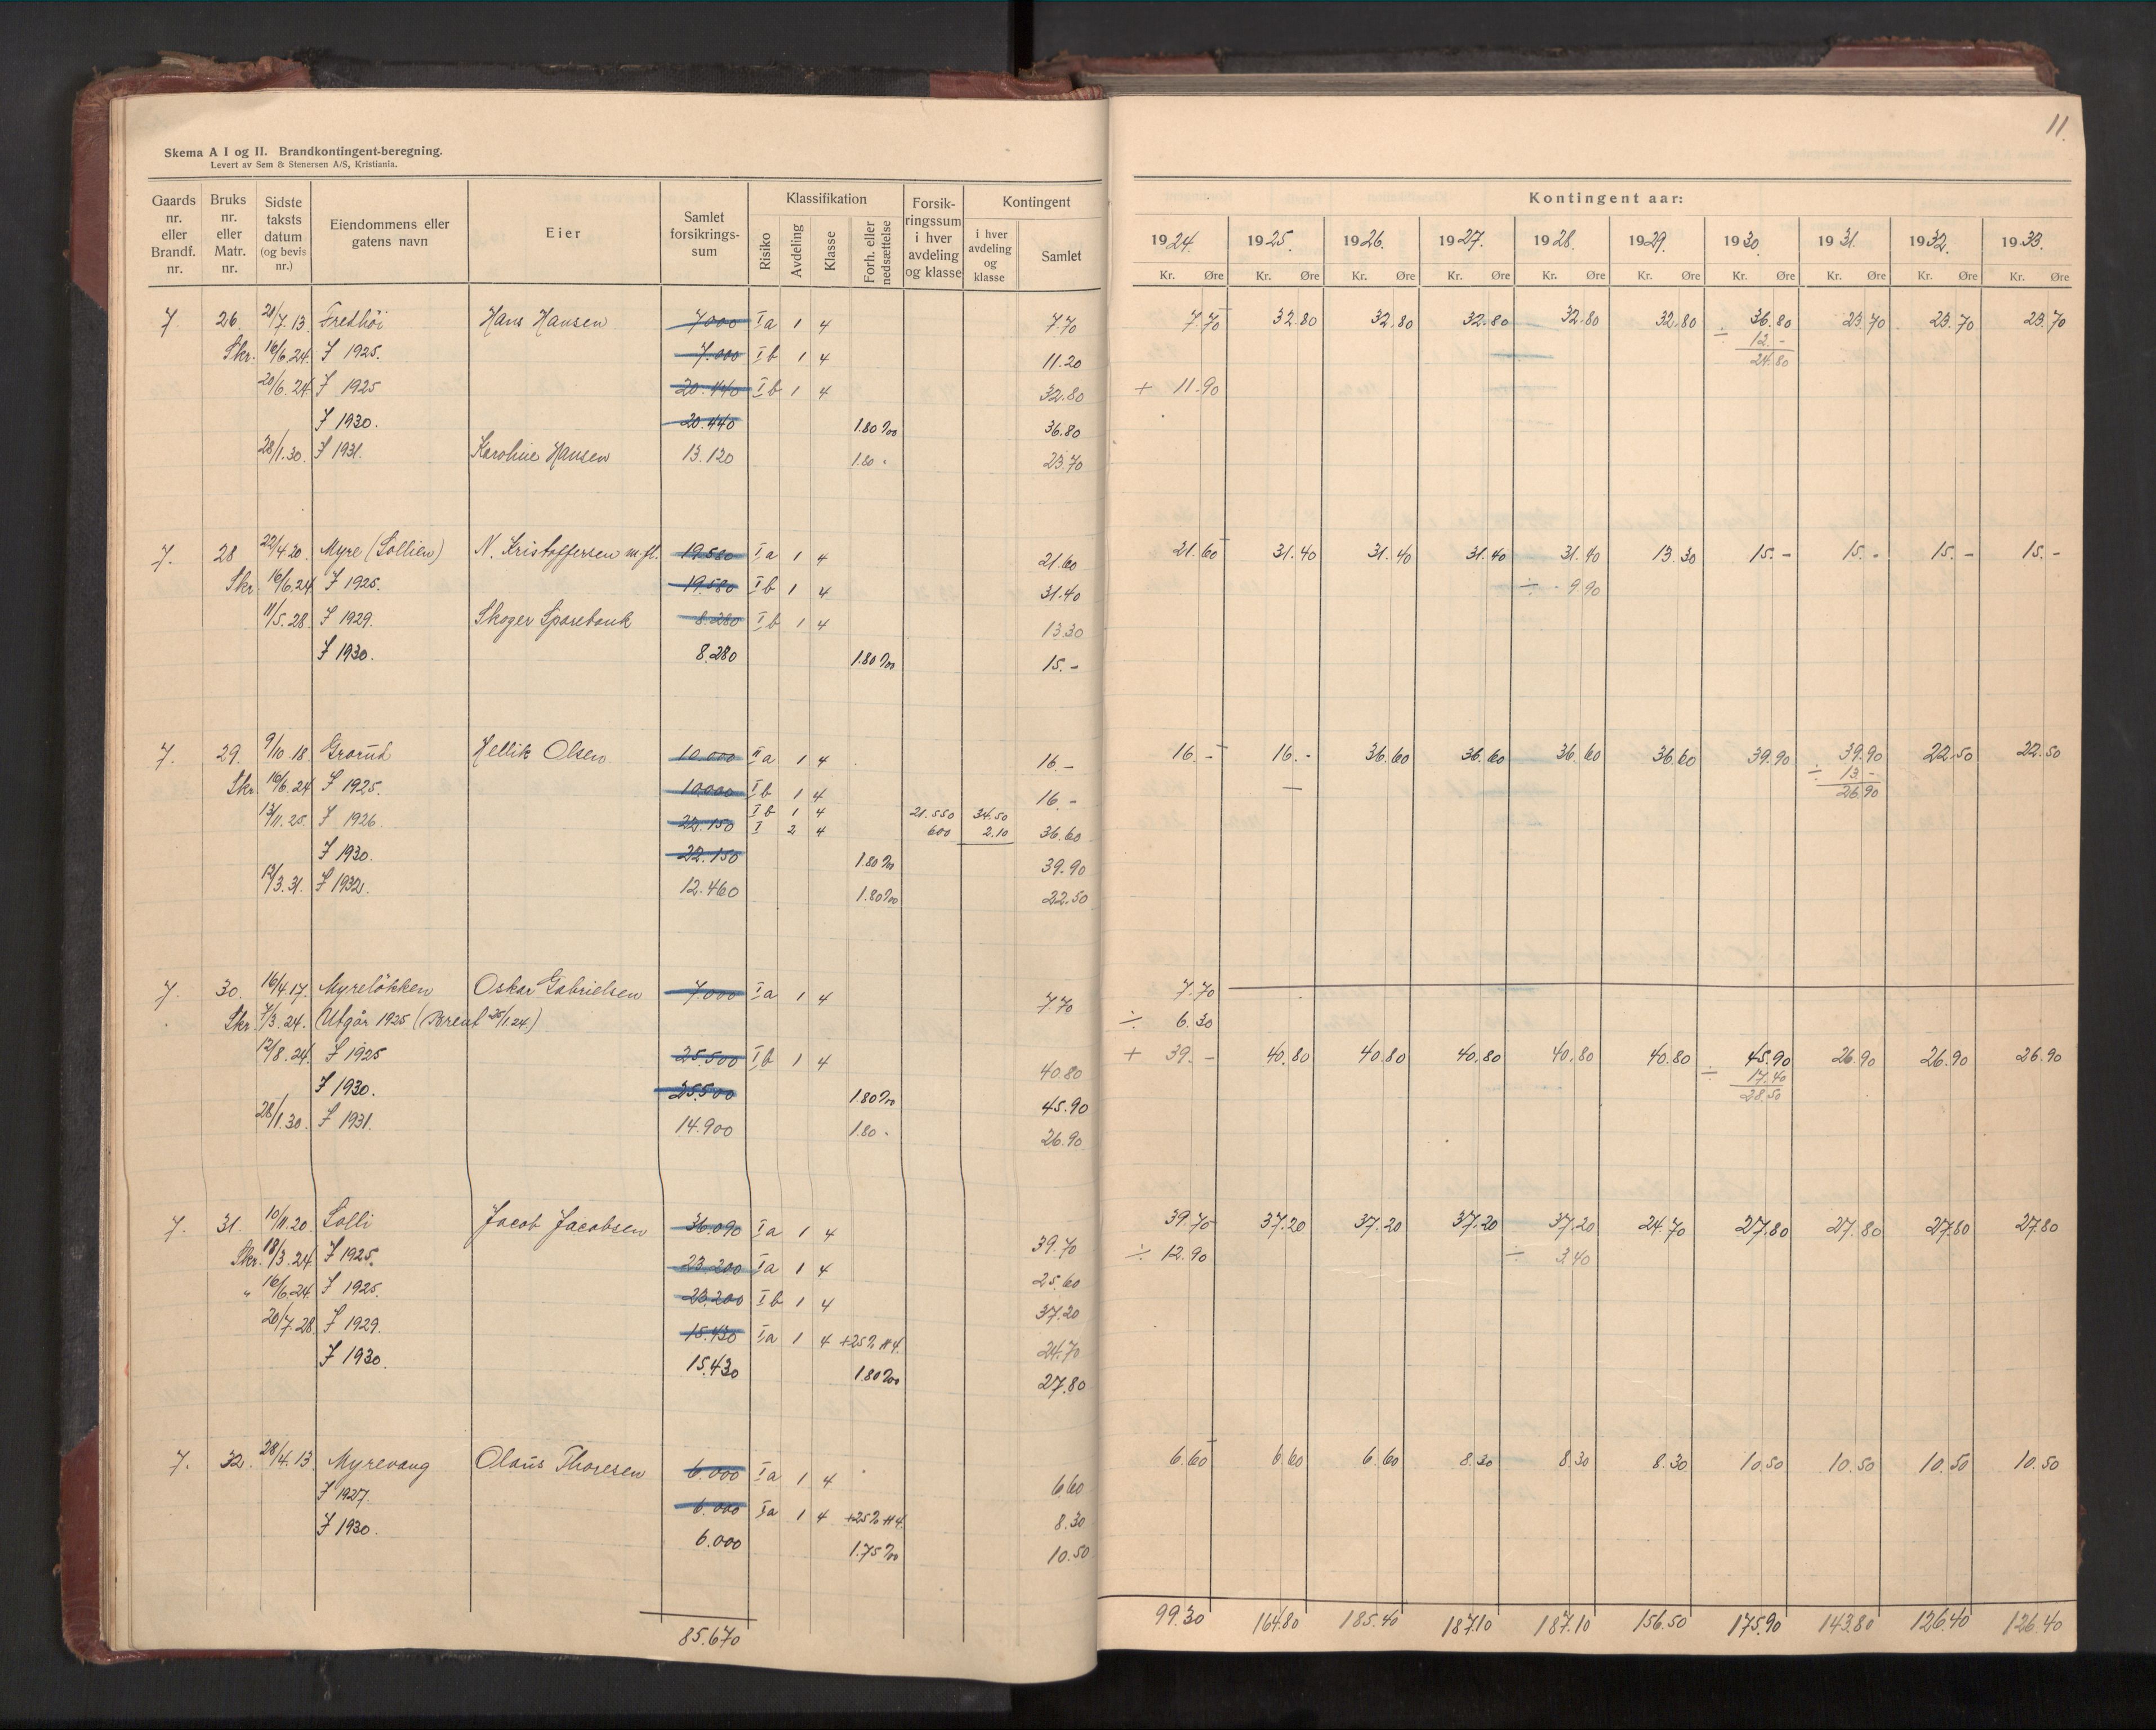 Skema A I og II. Brandkontingent-beregning.
Levert av Sem & Stenersen A/S, Kristiania.
Gaards nr. eller Brandf. nr. | Bruks nr. eller Matr. nr. | Sidste taksts datum (og bevis nr.) | Eiendommens eller gatens navn | Eier | Samlet forsikrings-sum | Klassifikation | Risiko | Avdeling | Klasse | Forh. eller nedsættelse | Forsik-ringssum i hver avdeling og klasse | Kontingent | i hver avdeling og klasse | Samlet
7 26 21/7.13 Fredhöi Hans Hansen 7000 Ia 1 4 7.70
Skr. 16/6.24 F 1925. 7.000 Ib 1 4 11.20
20/6.24 F 1925 20.440 Ib 1 4 32.80
F 1930. 20.440 1.80‰ 36.80
28/1.30. F 1931. Karoline Hansen 13.120 1.80 " 23.70
7. 28 22/4.20. Myre (Sollien) N. Kristoffersen m.fl. 19.580 Ia 1 4 21.60
Skr 16/6.24 F 1925. 19.580 Ib 1 4 31.40
11/5.28. F 1929. Skoger Sparebank 8.280 Ib 1 4 13.30
F 1930. 8.280 1.80‰ 15.-
7. 29. 9/10 18. Grorud Hellik Olsen 10.000 IIa 1 4 16.-
Skr. 16/6.24 F 1925. 10.000 Ib 1 4 16.-
13/11.25. F 1926. 22.150 Ib 1 4 21.550 34.50
I 2 4 600 2.10 36.60
F 1930. 22.150 1.80‰ 39.90
12/3.31. F 1932. 12.460 1.80‰ 22.50
7. 30. 16/4 17. Myreløkken Oskar Gabrielsen 7.000 Ia 1 4 7.70
Skr. 7/3.24. (Utgår 1925 (Brent 25/1.24)
12/8.24. F 1925 25.500 Ib 1 4 40.80
F 1930. 25.500 1.80‰ 45.90
28/1.30. F 1931. 14.900 1.80 " 26.90
7. 31. 10/11.20. Solli Jacob Jacobsen 36.090 Ia 1 4 39.70
Skr. 18/3.24 F 1925. 23.200 Ia 1 4 25.60
" 16/6.24. F 1925. 23.200 Ib 1 4 37.20
20/7.28 F 1929. 15.430 Ia 1 4 +25% H4. 24.70
F 1930. 15.430 1.80‰ 27.80
7. 32. 28/4.13. Myrevang Olaus Thoresen 6.000 Ia 1 4 6.60
F 1927. 6.000 Ia 1 4 +25% H4. 8.30
F 1930. 6.000 1.75‰ 10.50
85.670
11.
Kontingent aar:
1924. 1925. 1926. 1927. 1928. 1929. 1930. 1931. 1932. 1933.
Kr. Øre Kr. Øre Kr. Øre Kr. Øre Kr. Øre Kr. Øre Kr. Øre Kr. Øre Kr. Øre Kr. Øre
7.70 32.80 32.80 32.80 32.80 32.80 36.80 23.70 23.70 23.70
÷ 12.-
24.80
+ 11.90
21.60 31.40 31.40 31.40 31.40 13.30 15.- 15.- 15.- 15.-
÷ 9.90
16.- 16.- 36.60 36.60 36.60 36.60 39.90 39.90 22.50 22.50
÷ 13.-
26.90
7.70
÷ 6.30
+ 39.- 40.80 40.80 40.80 40.80 40.80 45.90 26.90 26.90 26.90
÷ 17.40
28.50
39.70 37.20 37.20 37.20 37.20 24.70 27.80 27.80 27.80 27.80
÷ 12.90 ÷ 3.40
6.60 6.60 6.60 8.30 8.30 8.30 10.50 10.50 10.50 10.50
99.30 164.80 185.40 187.10 187.10 156.50 175.90 143.80 126.40 126.40